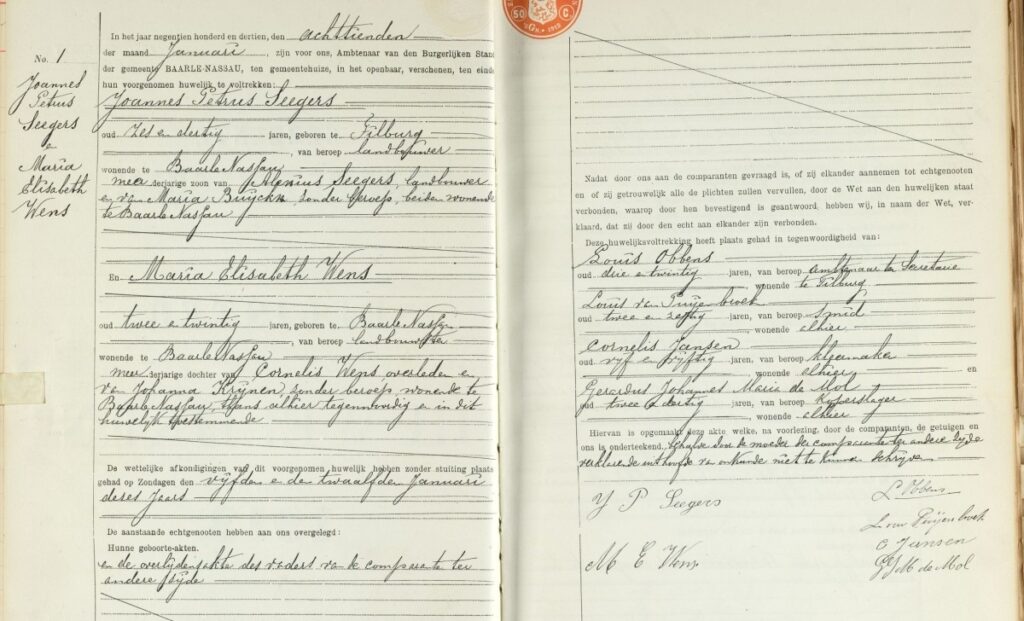 No. 1
Joannes
Petrus
Seegers
&
Maria
Elisabeth
Wens
In het jaar negentien honderd en dertien, den achttienden
der maand Januari, zijn voor ons, Ambtenaar van den Burgerlijken Stand
der gemeente BAARLE-NASSAU, ten gemeentehuize, in het openbaar, verschenen, ten einde
hun voorgenomen huwelijk te voltrekken:
Joannes Petrus Seegers
oud zes en dertig jaren, geboren te Tilburg
, van beroep landbouwer
wonende te Baarle Nassau
meerderjarige zoon van Seegers, landbouwer
en van Maria Buijckx, zonder beroep, beiden wonende
te Baarle Nassau
En Maria Elisabeth Wens
oud twee en twintig jaren, geboren te Baarle Nassau
, van beroep landbouwster
wonende te Baarle Nassau
meerderjarige dochter van Cornelis Wens overleden en
van Johanna Krijnen, zonder beroep, wonende te
Baarle Nassau, thans alhier tegenwoordig en in dit
huwelijk toestemmende
De wettelijke afkondigingen van dit voorgenomen huwelijk hebben zonder stuiting plaats
gehad op Zondagen den vijfden en den twaalfden Januari
dezes jaars
De aanstaande echtgenooten hebben aan ons overgelegd:
Hunne geboorte-akten.
en de overlijdensakte des vaders van de comparante ter
andere zijde
50 C
1912
Nadat door ons aan de comparanten gevraagd is, of zij elkander aannemen tot echtgenooten
en of zij getrouwelijk alle de plichten zullen vervullen, door de Wet aan den huwelijken staat
verbonden, waarop door hen bevestigend is geantwoord, hebben wij, in naam der Wet, ver-
klaard, dat zij door den echt aan elkander zijn verbonden.
Deze huwelijksvoltrekking heeft plaats gehad in tegenwoordigheid van:
Louis Obbens
oud drie en twintig jaren, van beroep Ambtenaar ter Secretarie
, wonende te Tilburg
Louis van Puijenbroek
oud twee en zestig jaren, van beroep smid
, wonende alhier
Cornelis Jansen
oud vijf en vijftig jaren, van beroep kleermaker
, wonende alhier en
Gerardus Johannes Maria de Mol
oud twee & dertig jaren, van beroep koperslager
, wonende alhier
Hiervan is opgemaakt deze akte welke, na voorlezing, door de comparanten, de getuigen en
ons is onderteekend. behalve door de moeder der comparante ter andere zijde
verklarende uit hoofde van onkunde niet te kunnen schrijven
J P Seegers
L. Obbens
L. van Puijenbroek
M E Wens
C Jansen
G J M de Mol